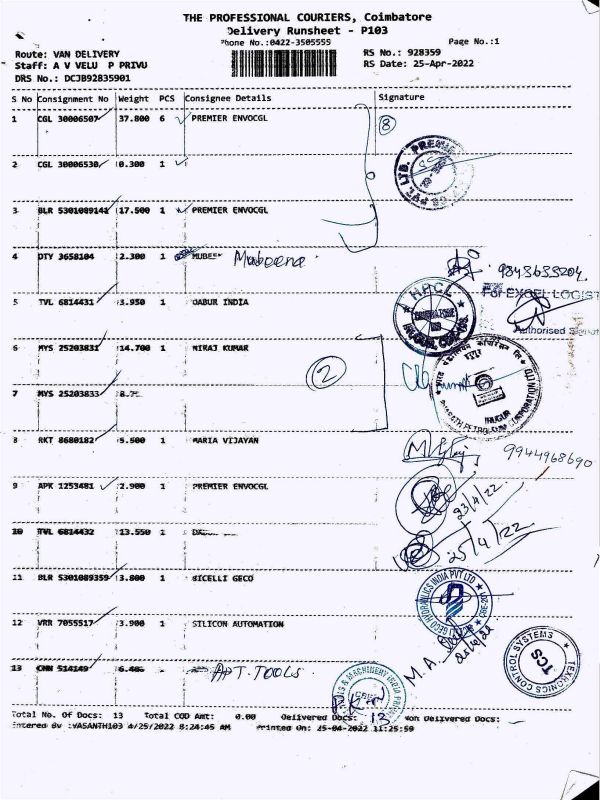 THE PROFESSIONAL COURIERS, Coimbatore
Delivery Runsheet - P103
Phone No.:0422-3505555 Page No.:1
Route: VAN DELIVERY RS No.: 928359
Staff: A V VELU P PRIVU RS Date: 25-Apr-2022
DRS No.: DCJB92835901
S No Consignment No Weight PCS Consignee Details Signature
1 CGL 30006507 37.800 6 PREMIER ENVOCGL
8
2 CGL 30006530 0.300 1
3 BLR 5301089141 17.500 1 PREMIER ENVOCGL
4 DTY 3658104 2.300 1 MUBEEN Mubeena
9843633204
For EXCEL LOGIST
5 TVL 6814431 3.950 1 DABUR INDIA
HPCL
IRUGUR
Authorised
6 MYS 25203831 14.700 1 NIRAJ KUMAR
2
7 MYS 25203833
BHARATH PETROLEUM CORPORATION LTD
IRUGUR
8 RKT 8680182 5.500 1 MARIA VIJAYAN
9944968690
9 APK 1253481 2.900 1 PREMIER ENVOCGL
23/4/22
10 TVL 6814432 13.550 1
25/4/22
11 BLR 5301089359 3.800 1 BICELLI GECO
GECO HYDRAULICS INDIA PVT LTD
12 VRR 7055517 3.900 1 SILICON AUTOMATION
M.A.
TEXMONICS CONTROL SYSTEMS
TCS
13 CHN 514149 APT. TOOLS
& MACHINERY INDIA
Total No. Of Docs: 13 Total COD Amt: 0.00 Delivered Docs: 13 Non Delivered Docs:
Entered By :VASANTH103 4/25/2022 8:24:45 AM Printed On: 25-04-2022 11:25:59